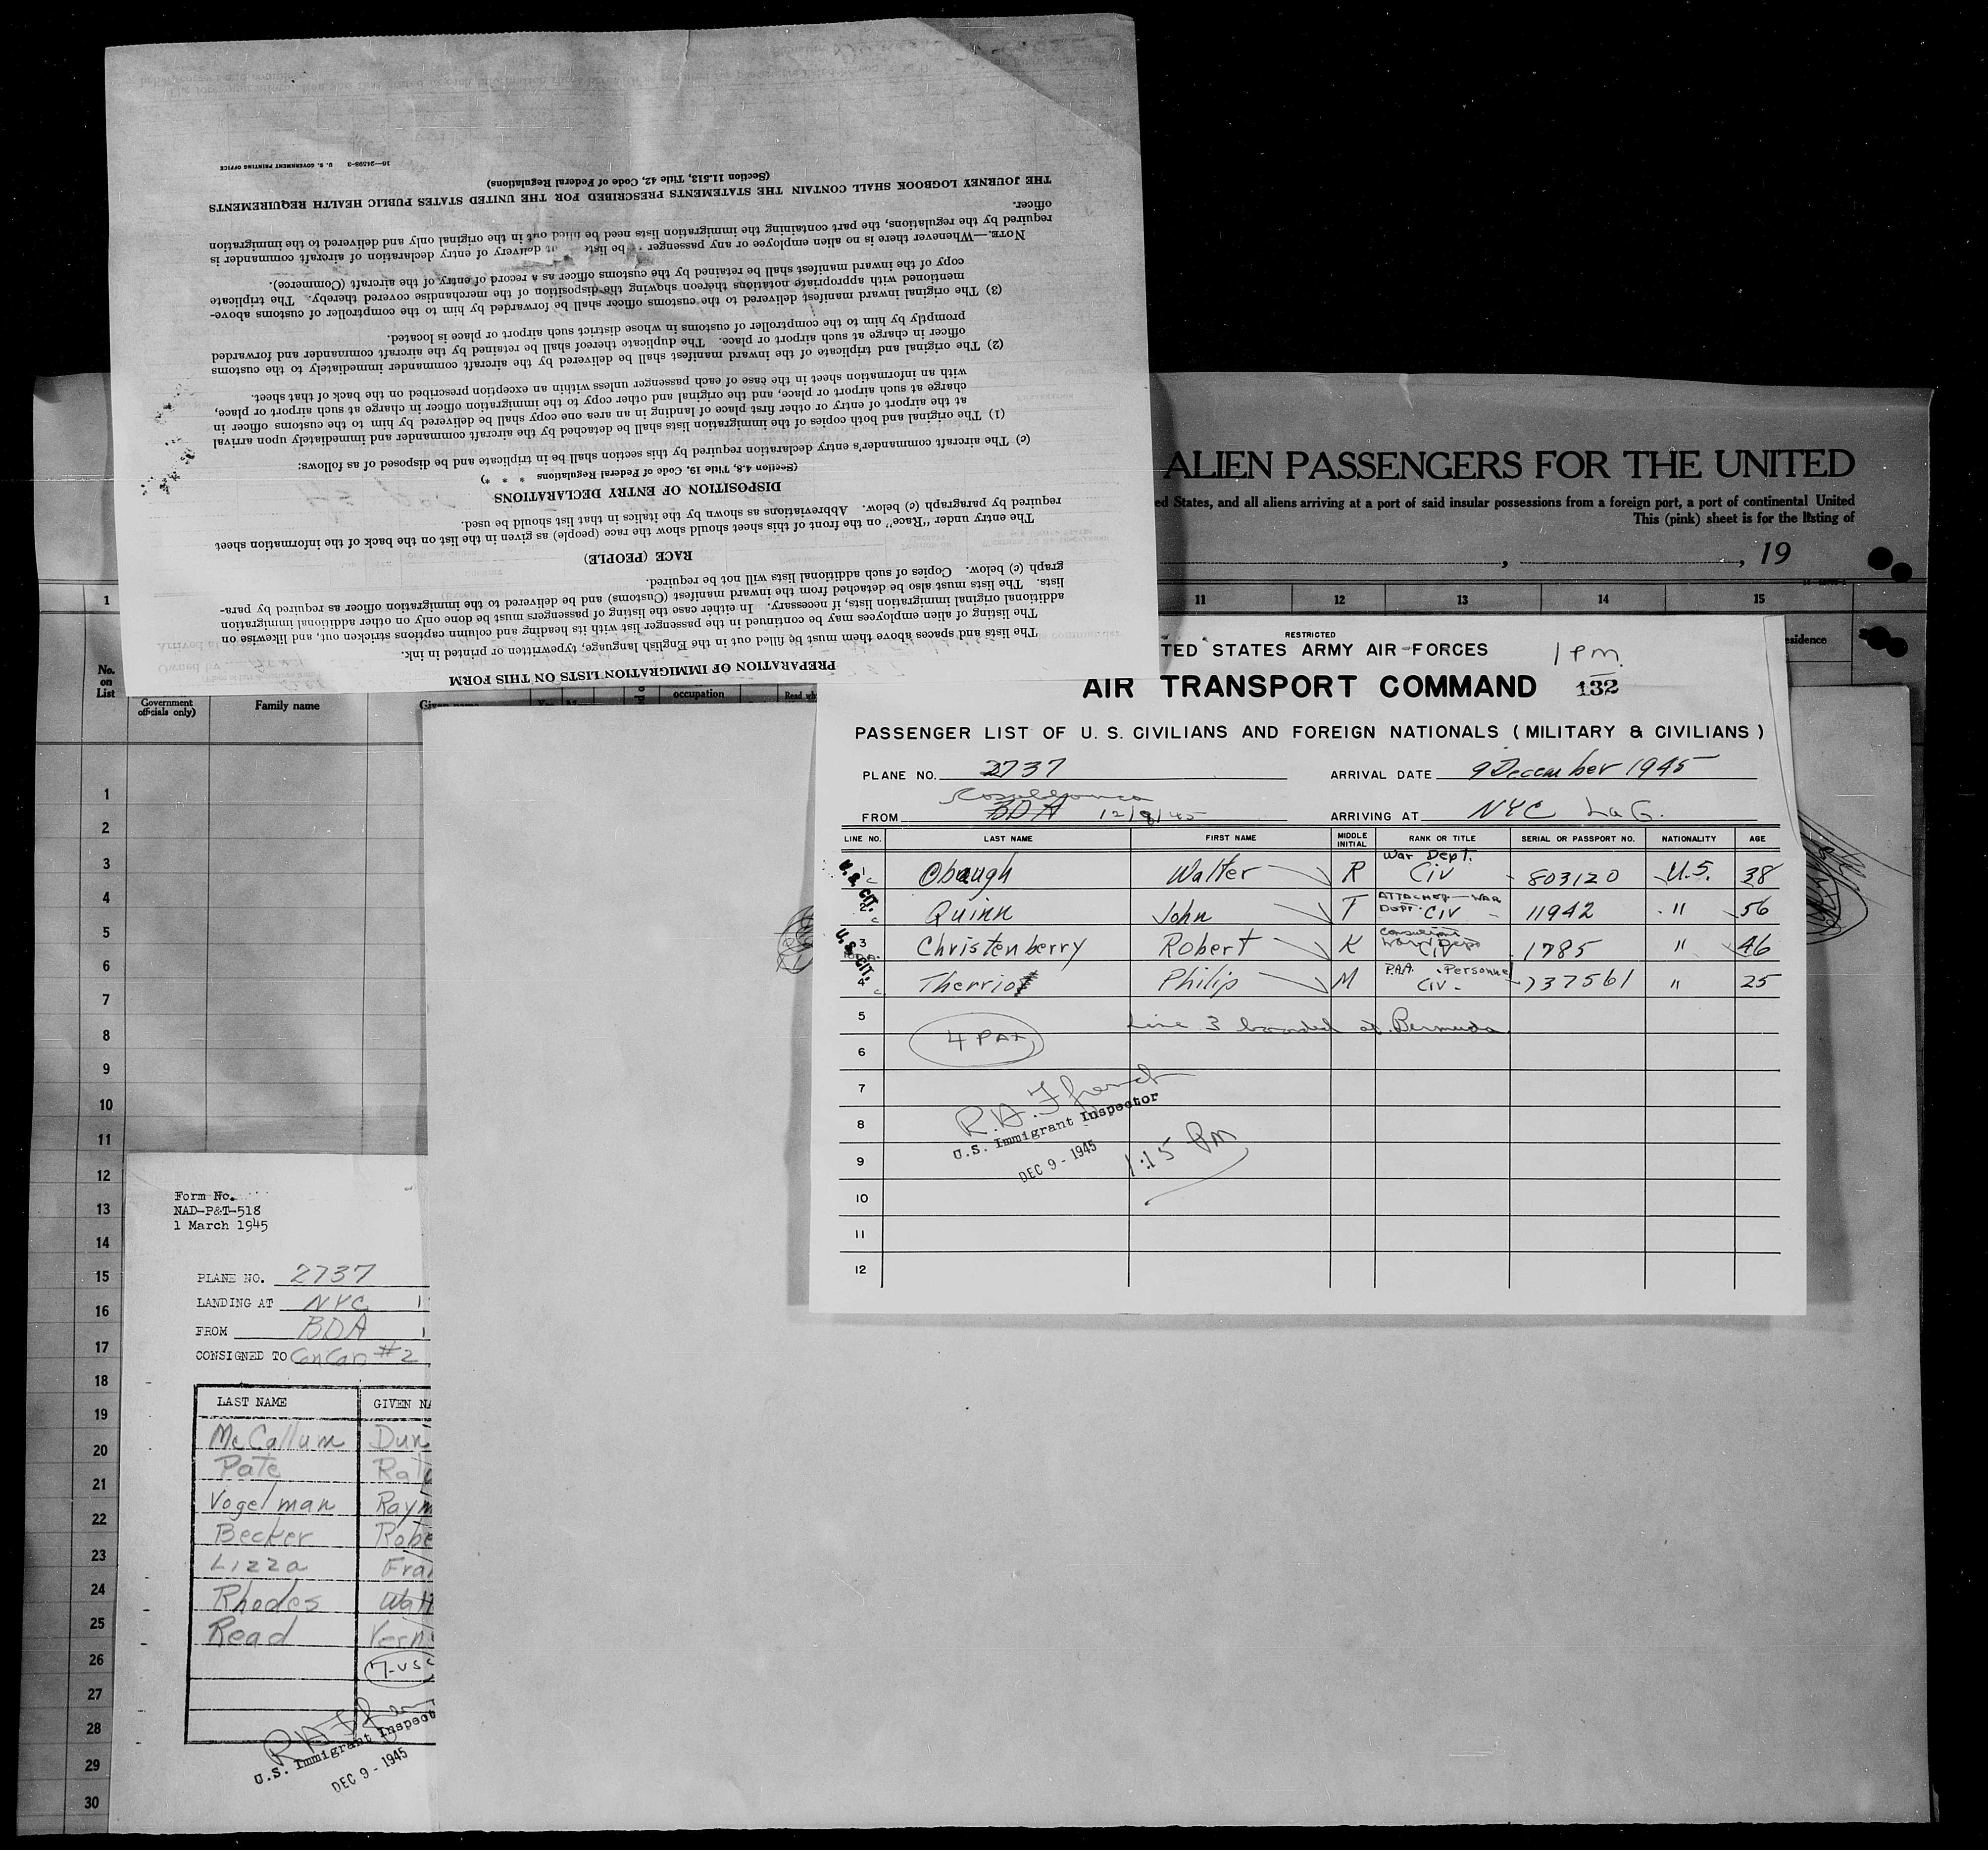 16—24598-3 U. S. GOVERNMENT PRINTING OFFICE
PREPARATION OF IMMIGRATION LISTS ON THIS FORM
The lists and spaces above them must be filled out in the English language, typewritten or printed in ink.
The listing of alien employees may be continued in the passenger list with its heading and column captions stricken out, and likewise on
additional original immigration lists, if necessary. In either case the listing of passengers must be done only on other additional immigration
lists. The lists must also be detached from the inward manifest (Customs) and be delivered to the immigration officer as required by para-
graph (c) below. Copies of such additional lists will not be required.
RACE (PEOPLE)
The entry under "Race" on the front of this sheet should show the race (people) as given in the list on the back of the information sheet
required by paragraph (c) below. Abbreviations as shown by the italics in that list should be used.
DISPOSITION OF ENTRY DECLARATIONS
(Section 4.8, Title 19, Code of Federal Regulations * * *)
(c) The aircraft commander's entry declaration required by this section shall be in triplicate and be disposed of as follows:
(1) The original and both copies of the immigration lists shall be detached by the aircraft commander and immediately upon arrival
at the airport of entry or other first place of landing in an area one copy shall be delivered by him to the customs officer in
charge at such airport or place, and the original and other copy to the immigration officer in charge at such airport or place,
with an information sheet in the case of each passenger unless within an exception prescribed on the back of that sheet.
(2) The original and triplicate of the inward manifest shall be delivered by the aircraft commander immediately to the customs
officer in charge at such airport or place. The duplicate thereof shall be retained by the aircraft commander and forwarded
promptly by him to the comptroller of customs in whose district such airport or place is located.
(3) The original inward manifest delivered to the customs officer shall be forwarded by him to the comptroller of customs above-
mentioned with appropriate notations thereon showing the disposition of the merchandise covered thereby. The triplicate
copy of the inward manifest shall be retained by the customs officer as a record of entry of the aircraft (Commerce).
NOTE.—Whenever there is no alien employee or any passenger be liste at delivery of entry declaration of aircraft commander is
required by the regulations, the part containing the immigration lists need be filled out in the original only and delivered to the immigration
officer.
THE JOURNEY LOGBOOK SHALL CONTAIN THE STATEMENTS PRESCRIBED FOR THE UNITED STATES PUBLIC HEALTH REQUIREMENTS
(Section 11.513, Title 42, Code of Federal Regulations)
ALIEN PASSENGERS FOR THE UNITED
ed States, and all aliens arriving at a port of said insular possessions from a foreign port, a port of continental United
This (pink) sheet is for the listing of
, , 19
1 11 12 13 14 15
esidence
No. on List
Government officials only)
Family name
Given name
occupation
Read wh
1
2
3
4
5
6
7
8
9
10
11
12
13
14
15
16
17
18
19
20
21
22
23
24
25
26
27
28
29
30
RESTRICTED
TED STATES ARMY AIR FORCES
1 PM.
AIR TRANSPORT COMMAND 132
PASSENGER LIST OF U. S. CIVILIANS AND FOREIGN NATIONALS ( MILITARY & CIVILIANS )
PLANE NO. 2737 ARRIVAL DATE 9 December 1945
FROM BDA 12/8/45 ARRIVING AT NYC La G.
LINE NO. LAST NAME FIRST NAME MIDDLE INITIAL RANK OR TITLE SERIAL OR PASSPORT NO. NATIONALITY AGE
1 Obaugh Walter R War Dept. Civ 803120 U.S. 38
2 Quinn John T ATTACHED WAR DEPT. CIV 11942 " 56
3 Christenberry Robert K Consultant War Dept CIV 1785 " 46
4 Therriot Philip M P.A.A. Personnel CIV 737561 " 25
U.S. CIT.
U.S. CIT.
5 Line 3 boarded at Bermuda
4 PAX
6
7
8
9
10
11
12
R.A. Ffrench
U.S. Immigrant Inspector
DEC 9 - 1945
1:15 PM
Form No.
NAD-P&T-518
1 March 1945
PLANE NO. 2737
LANDING AT NYC
FROM BDA
CONSIGNED TO ConCar #2
LAST NAME GIVEN NA
McCallum Dun
Pate Ral
Vogelman Raym
Becker Robe
Lizza Fra
Rhodes Walt
Read Vern
7-USC
U.S. Immigrant Inspect
DEC 9 - 1945